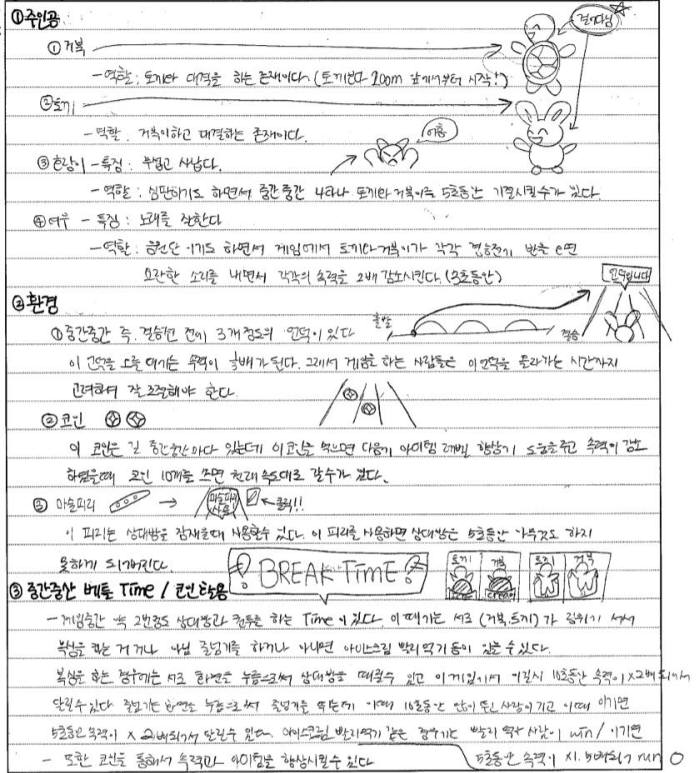 ①주인공
①거북
걷는다님
- 역할: 토끼와 대결을 하는 존재이다. (토끼보다 200m 앞에서부터 시작!)
②토끼
- 역할: 거북이하고 대결하는 존재이다.
어흥
③호랑이 - 특징: 무섭고 사납다.
- 역할: 심판하기도 하면서 중간중간 나타나 토끼와 거북이를 5초동안 기절시킬수가 있다.
④여우 - 특징: 노래를 잘한다
- 역할: 응원단 이기도 하면서 게임에서 토끼나 거북이가 각각 결승전기 반을 
요란한 소리를 내면서 각각의 속력을 2배 감소시킨다. (3초동안)
언덕입니다
②환경
출발
결승
①중간중간 즉, 결승전 전에 3개정도의 언덕이 있다
이 언덕을 오를 때가는 속력이 배가 된다. 그래서 게임을 하는 사람들은 이 언덕을 올라가는 시간까지
고려하여 잘 조절해야 한다.
②코인
이 코인은 길 중간중간마다 있는데 이 코인을 먹으면 다음기 아이템 레벨 향상기 도움을 주고 속력이 감소
하였을때 코인 10개를 쓰면 원래 속도대로 갈수가 있다.
③ 마술피리 → 마술피리 사용 ←클릭!!
이 피리는 상대방을 잠재울때 사용할수 있다. 이 피리를 사용하면 상대방은 5초동안 아무것도 하지
못하게 되어진다.
BREAK TIME
토끼 거북 토끼 거북
③ 중간중산 베틀 Time / 코인 타용
- 게임중간 즉 2번정도 상대방과 컴투를 하는 Time이 있다. 이 때가는 서로 (거북, 토끼)가 링위기 서서
복싱을 하는 거 거나 아님 줄넘기를 하거나 아니면 아이스크림 빨리 먹기 등이 있을 수 있다.
복싱을 하는 경우에는 서로 화면을 누름으로써 상대방을 때릴수 있고 이 게임에서 이길시 10초동안 속력이 x2배 되어
달릴수 있다. 줄넘기는 화면을 누름으로써 줄넘기를 하는데 이때 10초동안 많이 뛴 사람이 기고 이때 이기면
5초동안 속력이 x 2배 되어서 달릴수 있다. 아이스크림 빨리먹기 같은 경우가는 빨리 먹자 사람이 win / 이기면
5초동안 속력이 x1.5배되어 run O
- 또한 코인을 통해서 속력과 아이템을 향상시킬수 있다